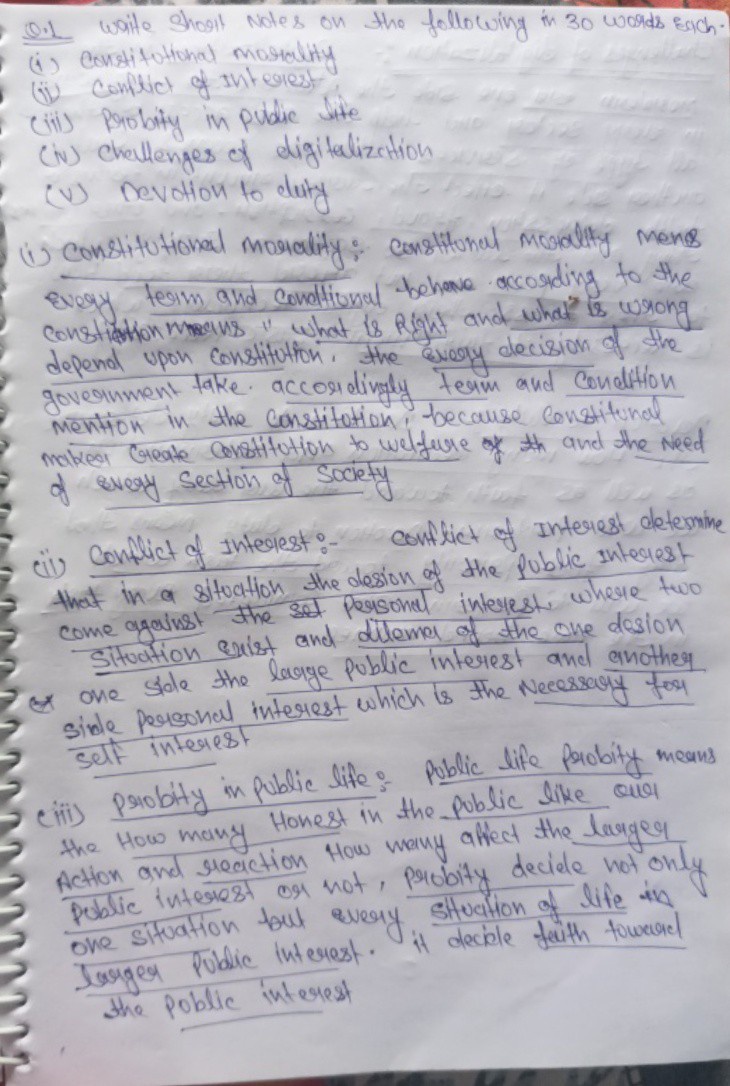 Q.1 write short Notes on the following in 30 words Each.
(i) Constitutional morality
(ii) Conflict of Interest
(iii) Probity in public life
(iv) Challenges of digitalization
(v) Devotion to duty
(i) Constitutional morality :- Constitonal morality mens
every term and conditional behave according to the
constitution means " what is Right and what is wrong
depend upon constitution. the every decision of the
government take accordingly term and Condition
mention in the Constitution, because Constitunal
maker Create Constitution to welfare of th and the Need
of every Section of Society
(ii) Conflict of Interest :- Conflict of Interest determine
that in a situation the desion of the Public Interest
come against the set Personal interest. where two
situation exist and dilemel of the one desion
one side the large public interest and another
side Personal interest which is the Necessary for
self interest
(iii) Probity in public life :- Public life Probity means
the How many Honest in the Public like our
Action and reaction How many affect the larger
Public interest or not, Probity decide not only
one situation but every situation of life in
larger Public interest. it decide faith toward
the Public interest